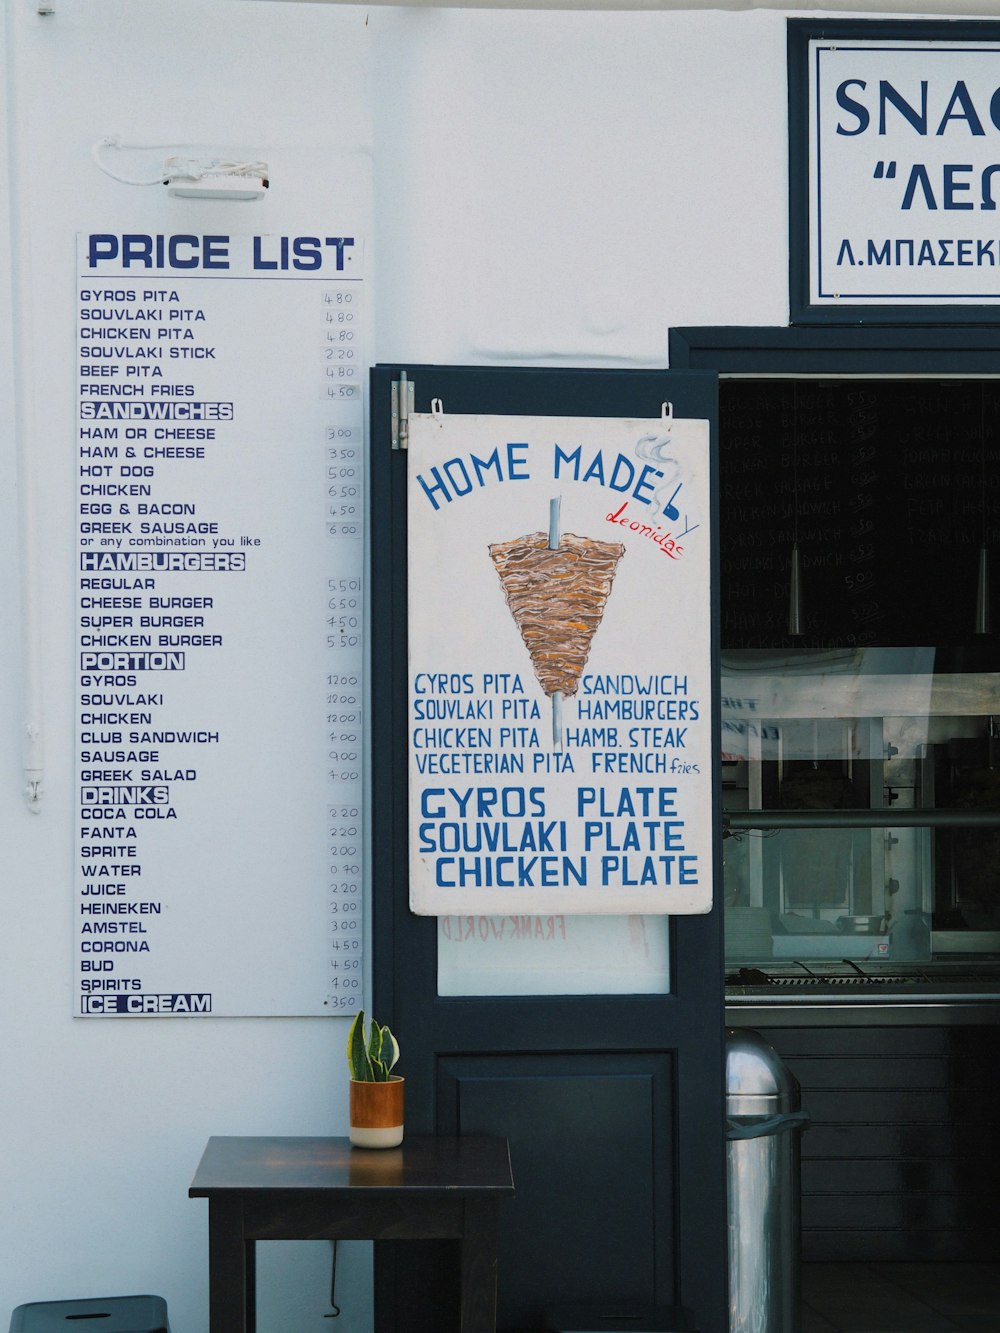 PRICE LIST
GYROS PITA 4 80
SOUVLAKI PITA 4 80
CHICKEN PITA 4 80
SOUVLAKI STICK 2 20
BEEF PITA 4 80
FRENCH FRIES 4 50
SANDWICHES
HAM OR CHEESE 3 00
HAM & CHEESE 3 50
HOT DOG 5 00
CHICKEN 6 50
EGG & BACON 4 50
GREEK SAUSAGE 6 00
or any combination you like
HAMBURGERS
REGULAR 5 50
CHEESE BURGER 6 50
SUPER BURGER 7 50
CHICKEN BURGER 5 50
PORTION
GYROS 12 00
SOUVLAKI 12 00
CHICKEN 12 00
CLUB SANDWICH 7 00
SAUSAGE 9 00
GREEK SALAD 7 00
DRINKS
COCA COLA 2 20
FANTA 2 20
SPRITE 2 00
WATER 0 70
JUICE 2 20
HEINEKEN 3 00
AMSTEL 3 00
CORONA 4 50
BUD 4 50
SPIRITS 7 00
ICE CREAM 3 50
HOME MADE by
Leonidas
GYROS PITA SANDWICH
SOUVLAKI PITA HAMBURGERS
CHICKEN PITA HAMB. STEAK
VEGETERIAN PITA FRENCH fries
GYROS PLATE
SOUVLAKI PLATE
CHICKEN PLATE
FRANKWORLD
SNAC
“ΛΕΩ
Λ.ΜΠΑΣΕΚ